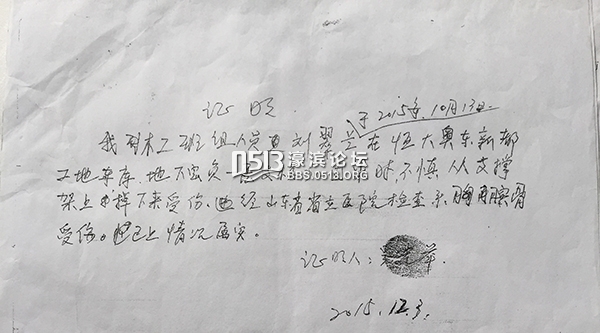 证明
于2015年10月13日
我列木工班组人员 刘翠兰在恒大奥东新都
工地车库地下室负 时不慎从支撑
架上 掉下来受伤。经山东省省立医院检查示胸 腰骨
受伤。以上情况属实。
证明人:
2015.12.3.
0513 濠滨论坛
BBS.0513.ORG